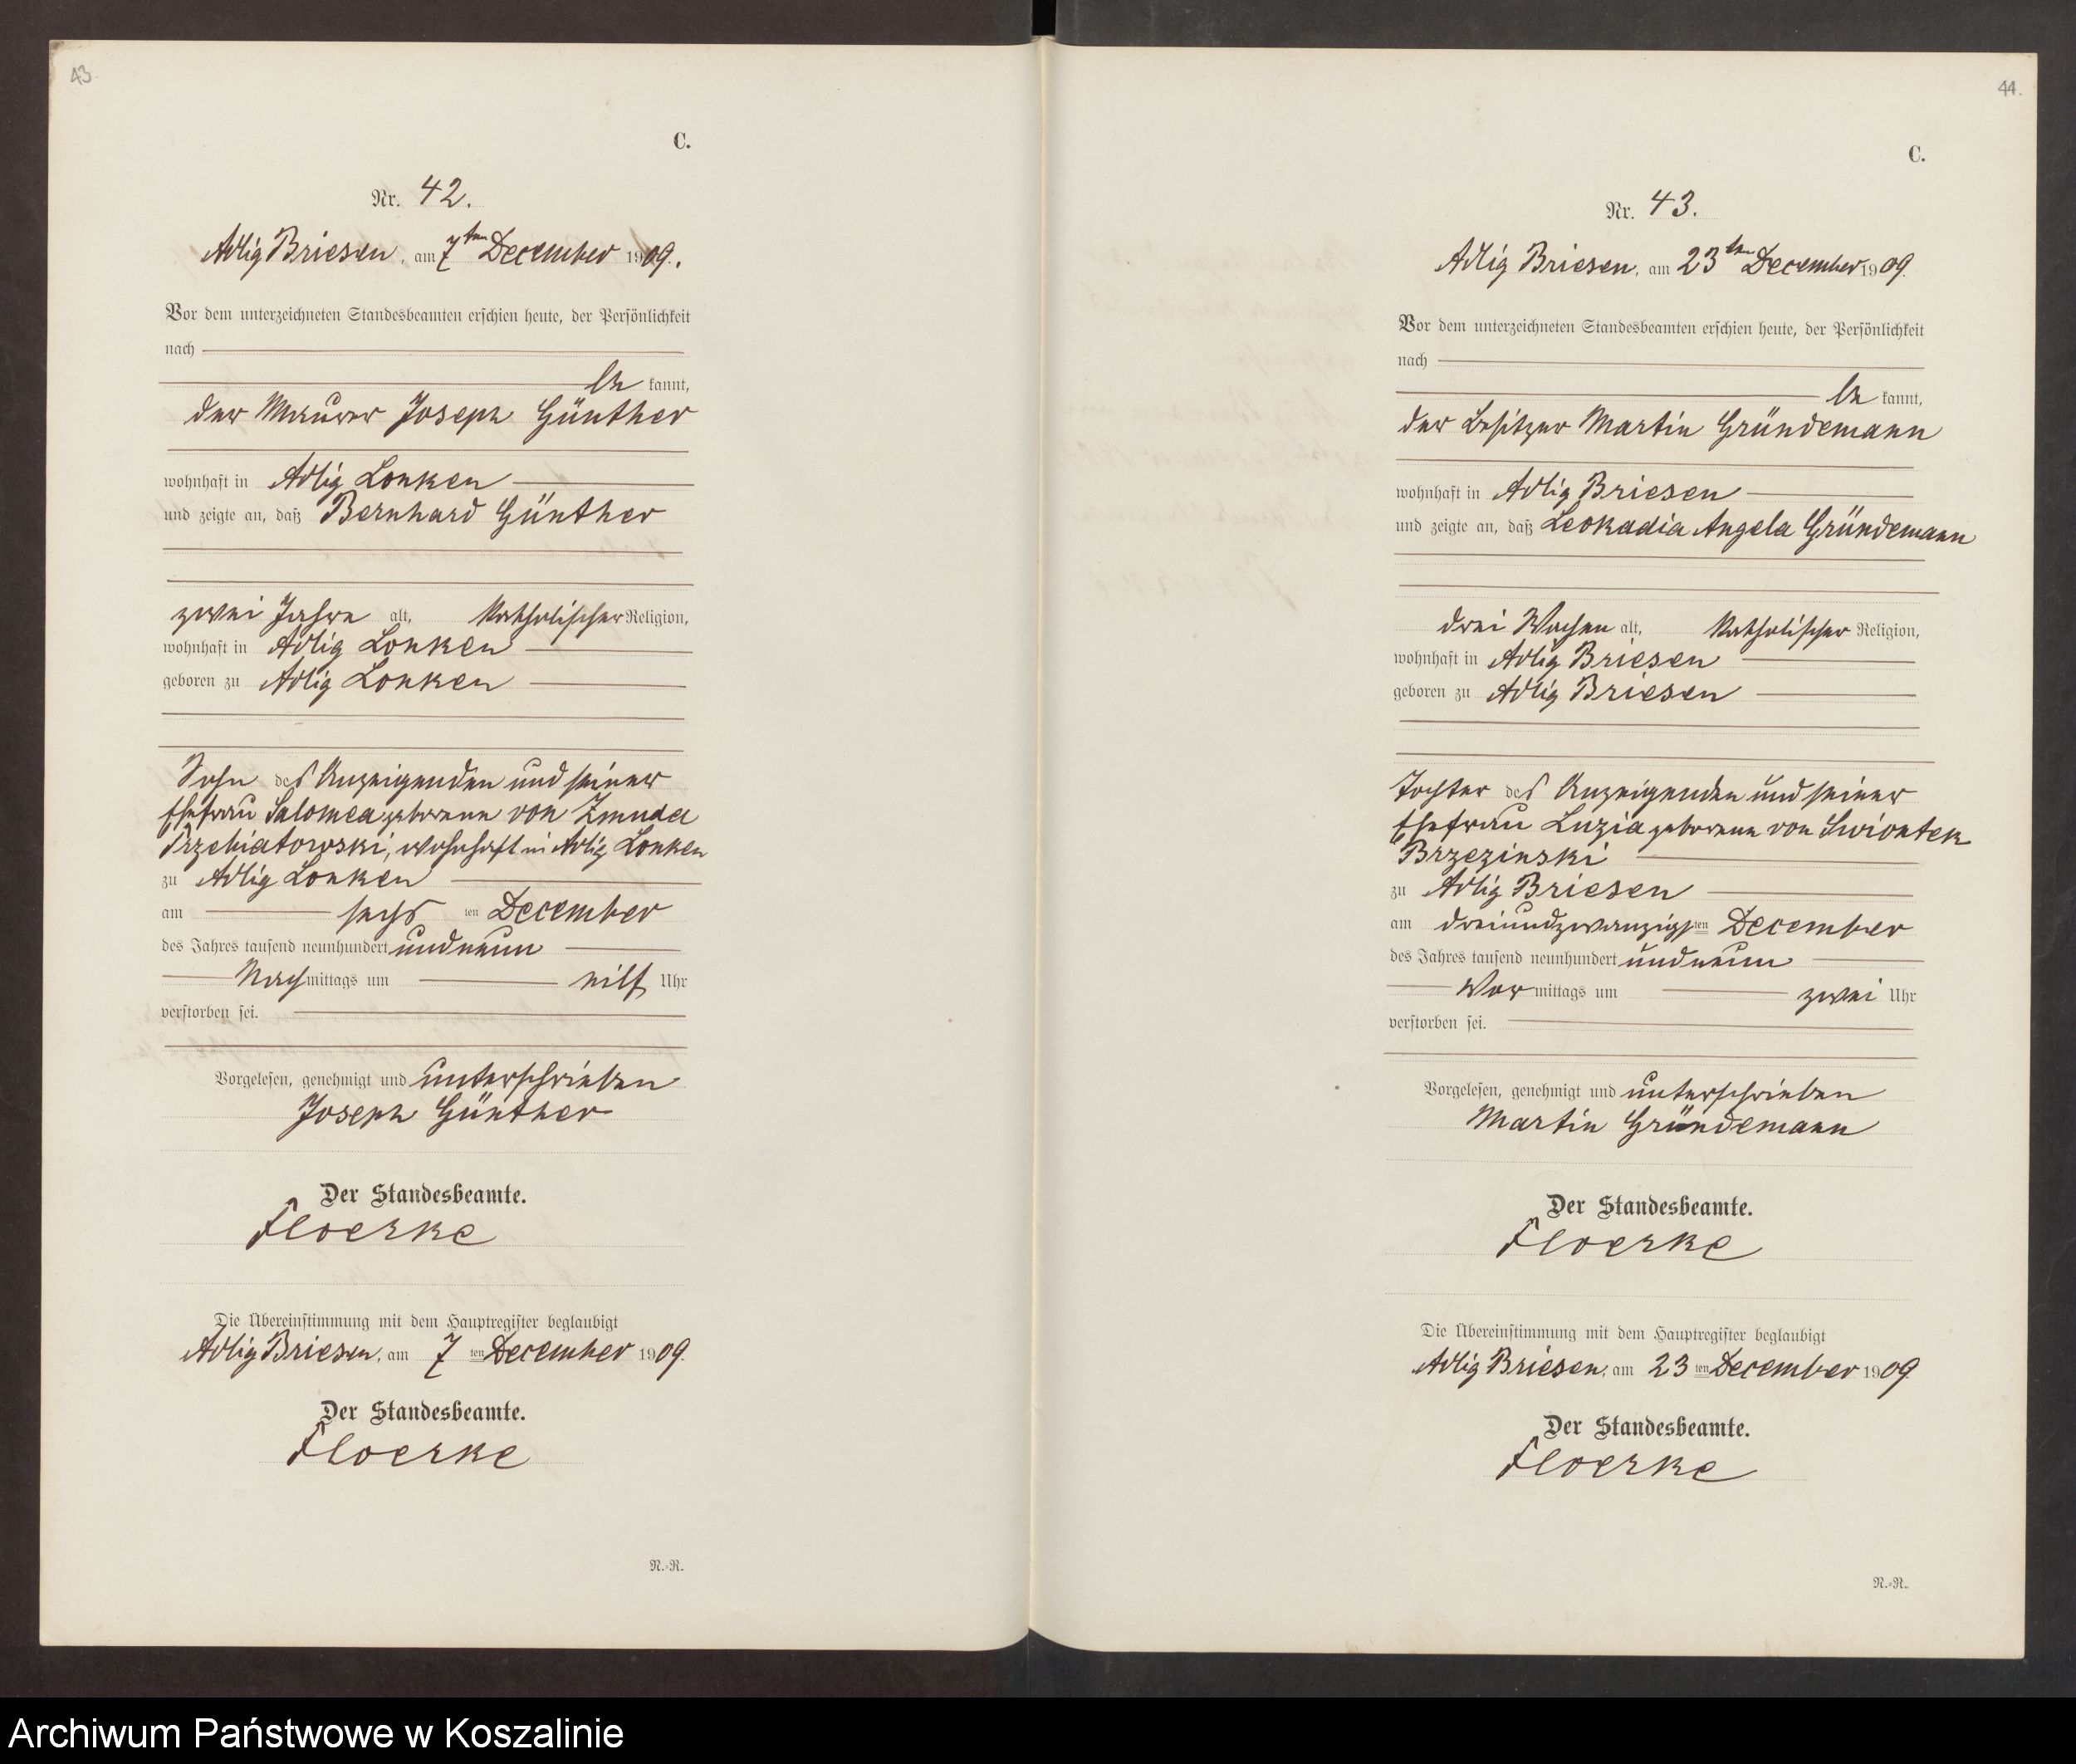 43.
C.
Nr. 42.
Adlig Briesen, am 7ten December 1909.
Vor dem unterzeichneten Standesbeamten erschien heute, der Persönlichkeit
nach
be kannt,
der Maurer Joseph Günther
wohnhaft in Adlig Lonken
und zeigte an, daß Bernhard Günther
zwei Jahre alt, katholischer Religion,
wohnhaft in Adlig Lonken
geboren zu Adlig Lonken
Sohn des Anzeigenden und seiner
Ehefrau Salomea geborene von Zmuda
Trzebiatowski, wohnhaft in Adlig Lonken
zu Adlig Lonken
am sechsten December
des Jahres tausend neunhundert undneun
Nachmittags um elf Uhr
verstorben sei.
Vorgelesen, genehmigt und unterschrieben
Joseph Günther
Der Standesbeamte.
Floerke
Die Übereinstimmung mit dem Hauptregister beglaubigt
Adlig Briesen, am 7ten December 1909.
Der Standesbeamte.
Floerke
N.-R.
44.
C.
Nr. 43.
Adlig Briesen, am 23ten December 1909.
Vor dem unterzeichneten Standesbeamten erschien heute, der Persönlichkeit
nach
be kannt,
der Besitzer Martin Gründemann
wohnhaft in Adlig Briesen
und zeigte an, daß Leokadia Angela Gründemann
drei Wochen alt, katholischer Religion,
wohnhaft in Adlig Briesen
geboren zu Adlig Briesen
Tochter des Anzeigenden und seiner
Ehefrau Luzia geborene von Swiontek
Brzezinski
zu Adlig Briesen
am dreiundzwanzigsten December
des Jahres tausend neunhundert undneun
Vormittags um zwei Uhr
verstorben sei.
Vorgelesen, genehmigt und unterschrieben
Martin Gründemann
Der Standesbeamte.
Floerke
Die Übereinstimmung mit dem Hauptregister beglaubigt
Adlig Briesen, am 23ten December 1909.
Der Standesbeamte.
Floerke
N.-R.
Archiwum Państwowe w Koszalinie